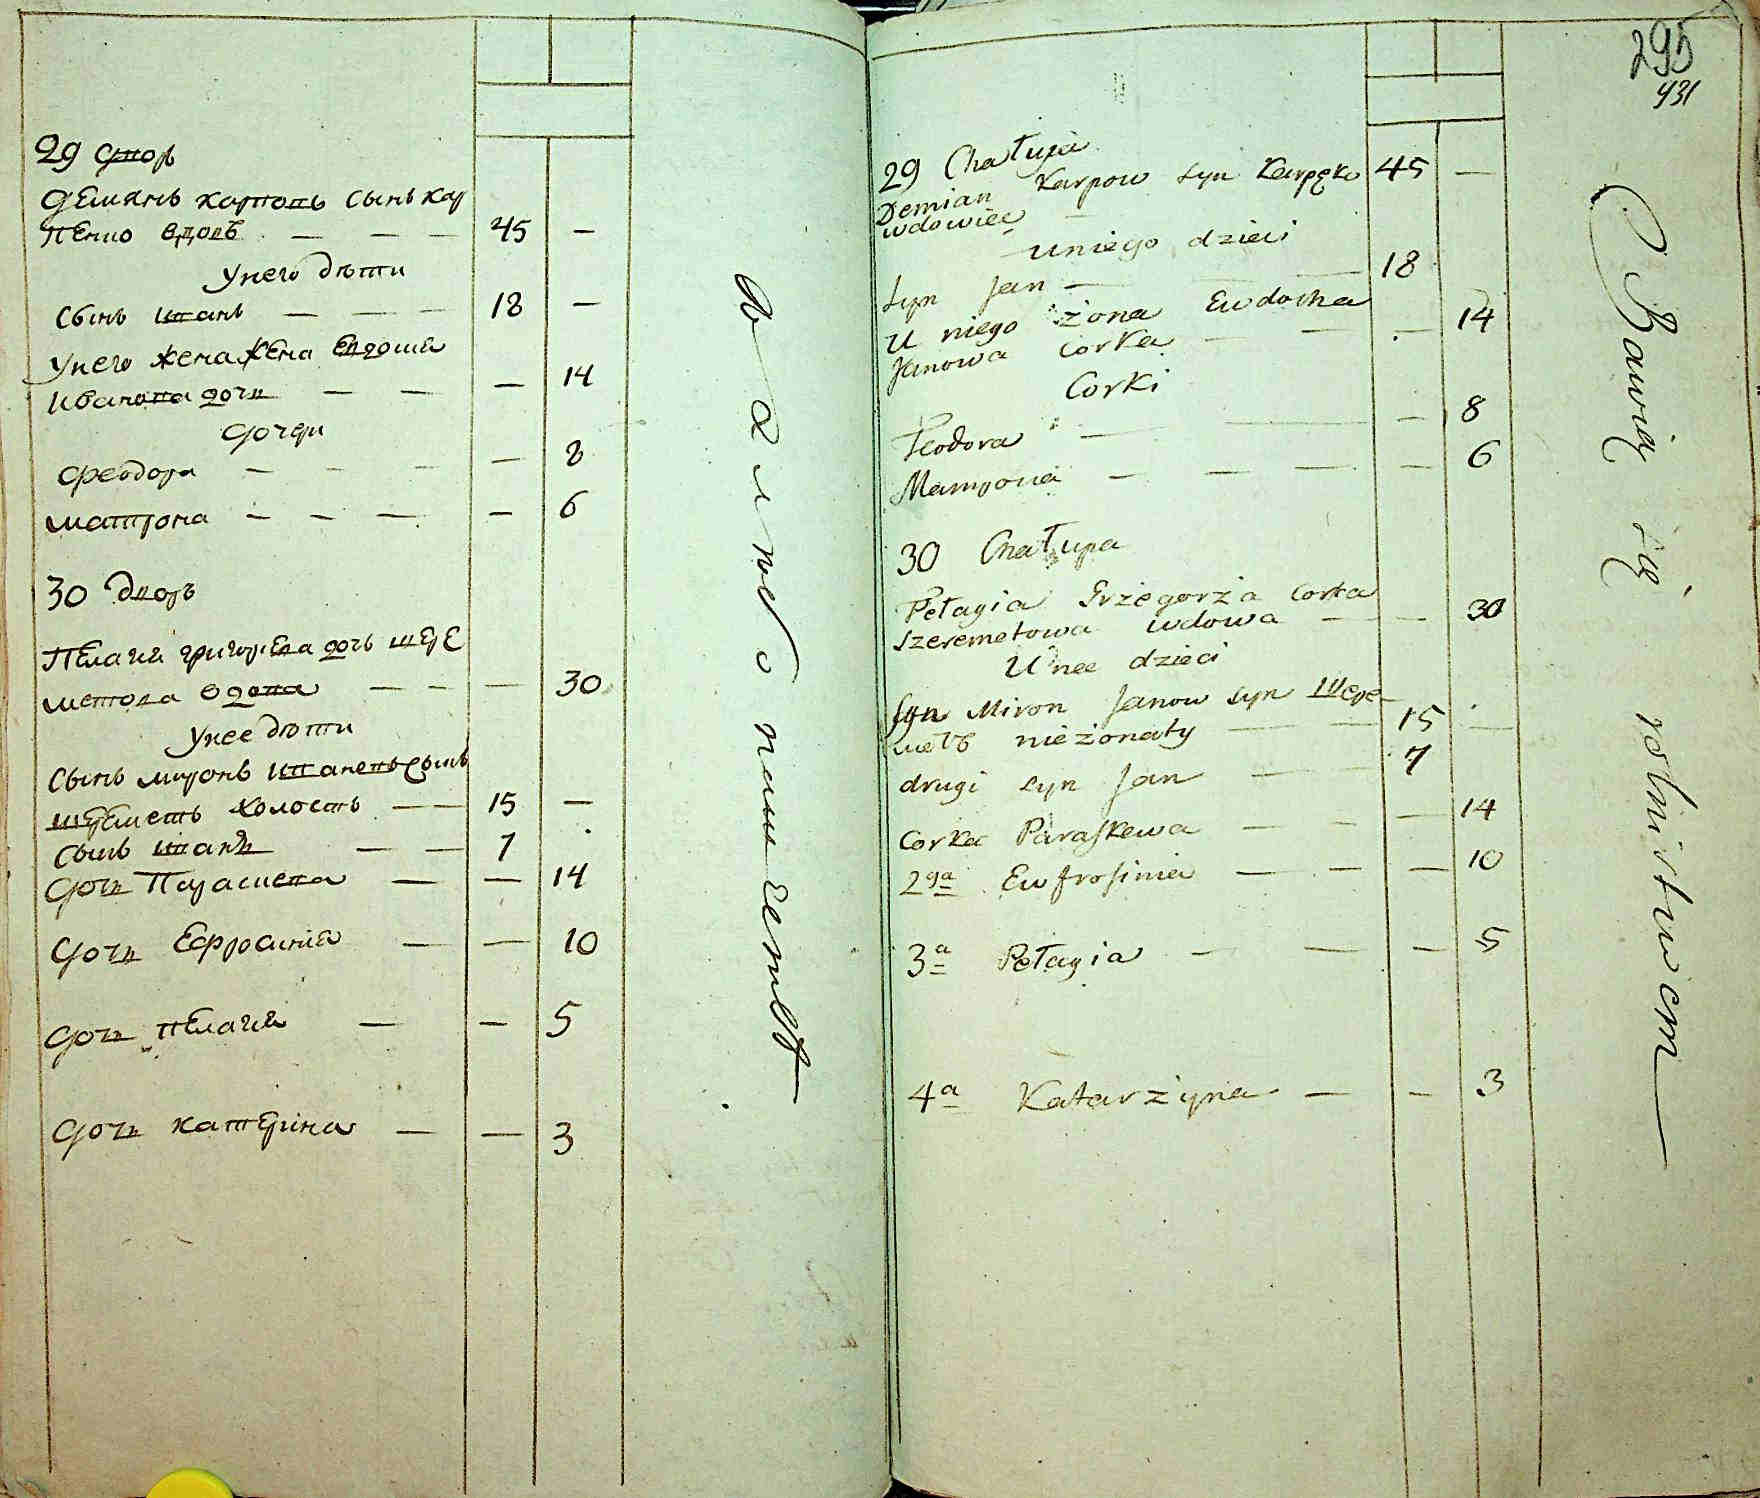 29 двор
демянъ карповъ сынъ кар
пенко вдовъ — — — 45 —
у него дѣти
сынъ иванъ — — — 18 —
у него жена жена евдошиа
иванова дочь — — — 14
дочери
феодора — — — — 8
матрона — — — — 6
30 двор
Пелагиа григориева дочь шере
метова вдова — — — 30
у нее дѣти
сынъ миронъ ивановъ сынъ
шереметъ холостъ — — 15 —
сынъ иванъ — — 7
дочь Параскева — — 14
дочь Ефросиниа — — 10
дочь пелагиа — — 5
дочь катерина — — 3
хлѣбопашествѣ
295
431
29 Chałupa
Demian Karpow syn Karpęko 45 —
wdowiec
u niego dzieci
syn Jan — — — 18
U niego żona Eudocha
Janowa corka — — — 14
Corki
Teodora — — — 8
Matrona — — — — 6
30 Chałupa
Pełagia Grzegorża corka
Szeremetowa wdowa — — 30
U nee dzieci
syn Miron Janow syn Шере-
метъ nieżonaty — — 15 —
drugi syn Jan — — 7
corka Paraskewa — — — 14
2ga Eufrosinia — — — 10
3a Pełagia — — — 5
4a Katarżyna — — 3
Bawię się rolnictwem